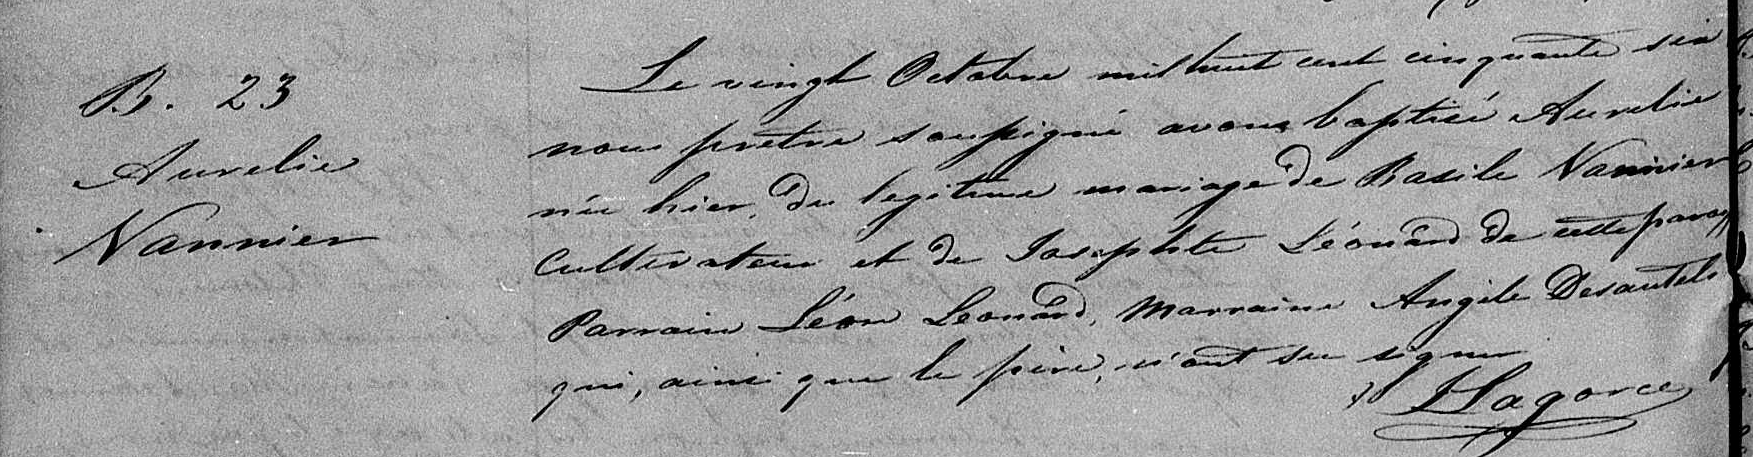 B. 23
Aurelie
Vannier
Le vingt Octobre mil huit cent cinquante six
nous prêtre soussigné avons baptisé Aurelie
née hier, du legitime mariage de Basile Vannier
Cultivateur et de Josephte Léonard de cette paroi
Parrain Léon Leonard, Marraine Angèle Desautels
qui, ainsi que le père, n'ont su signer
Lagorce